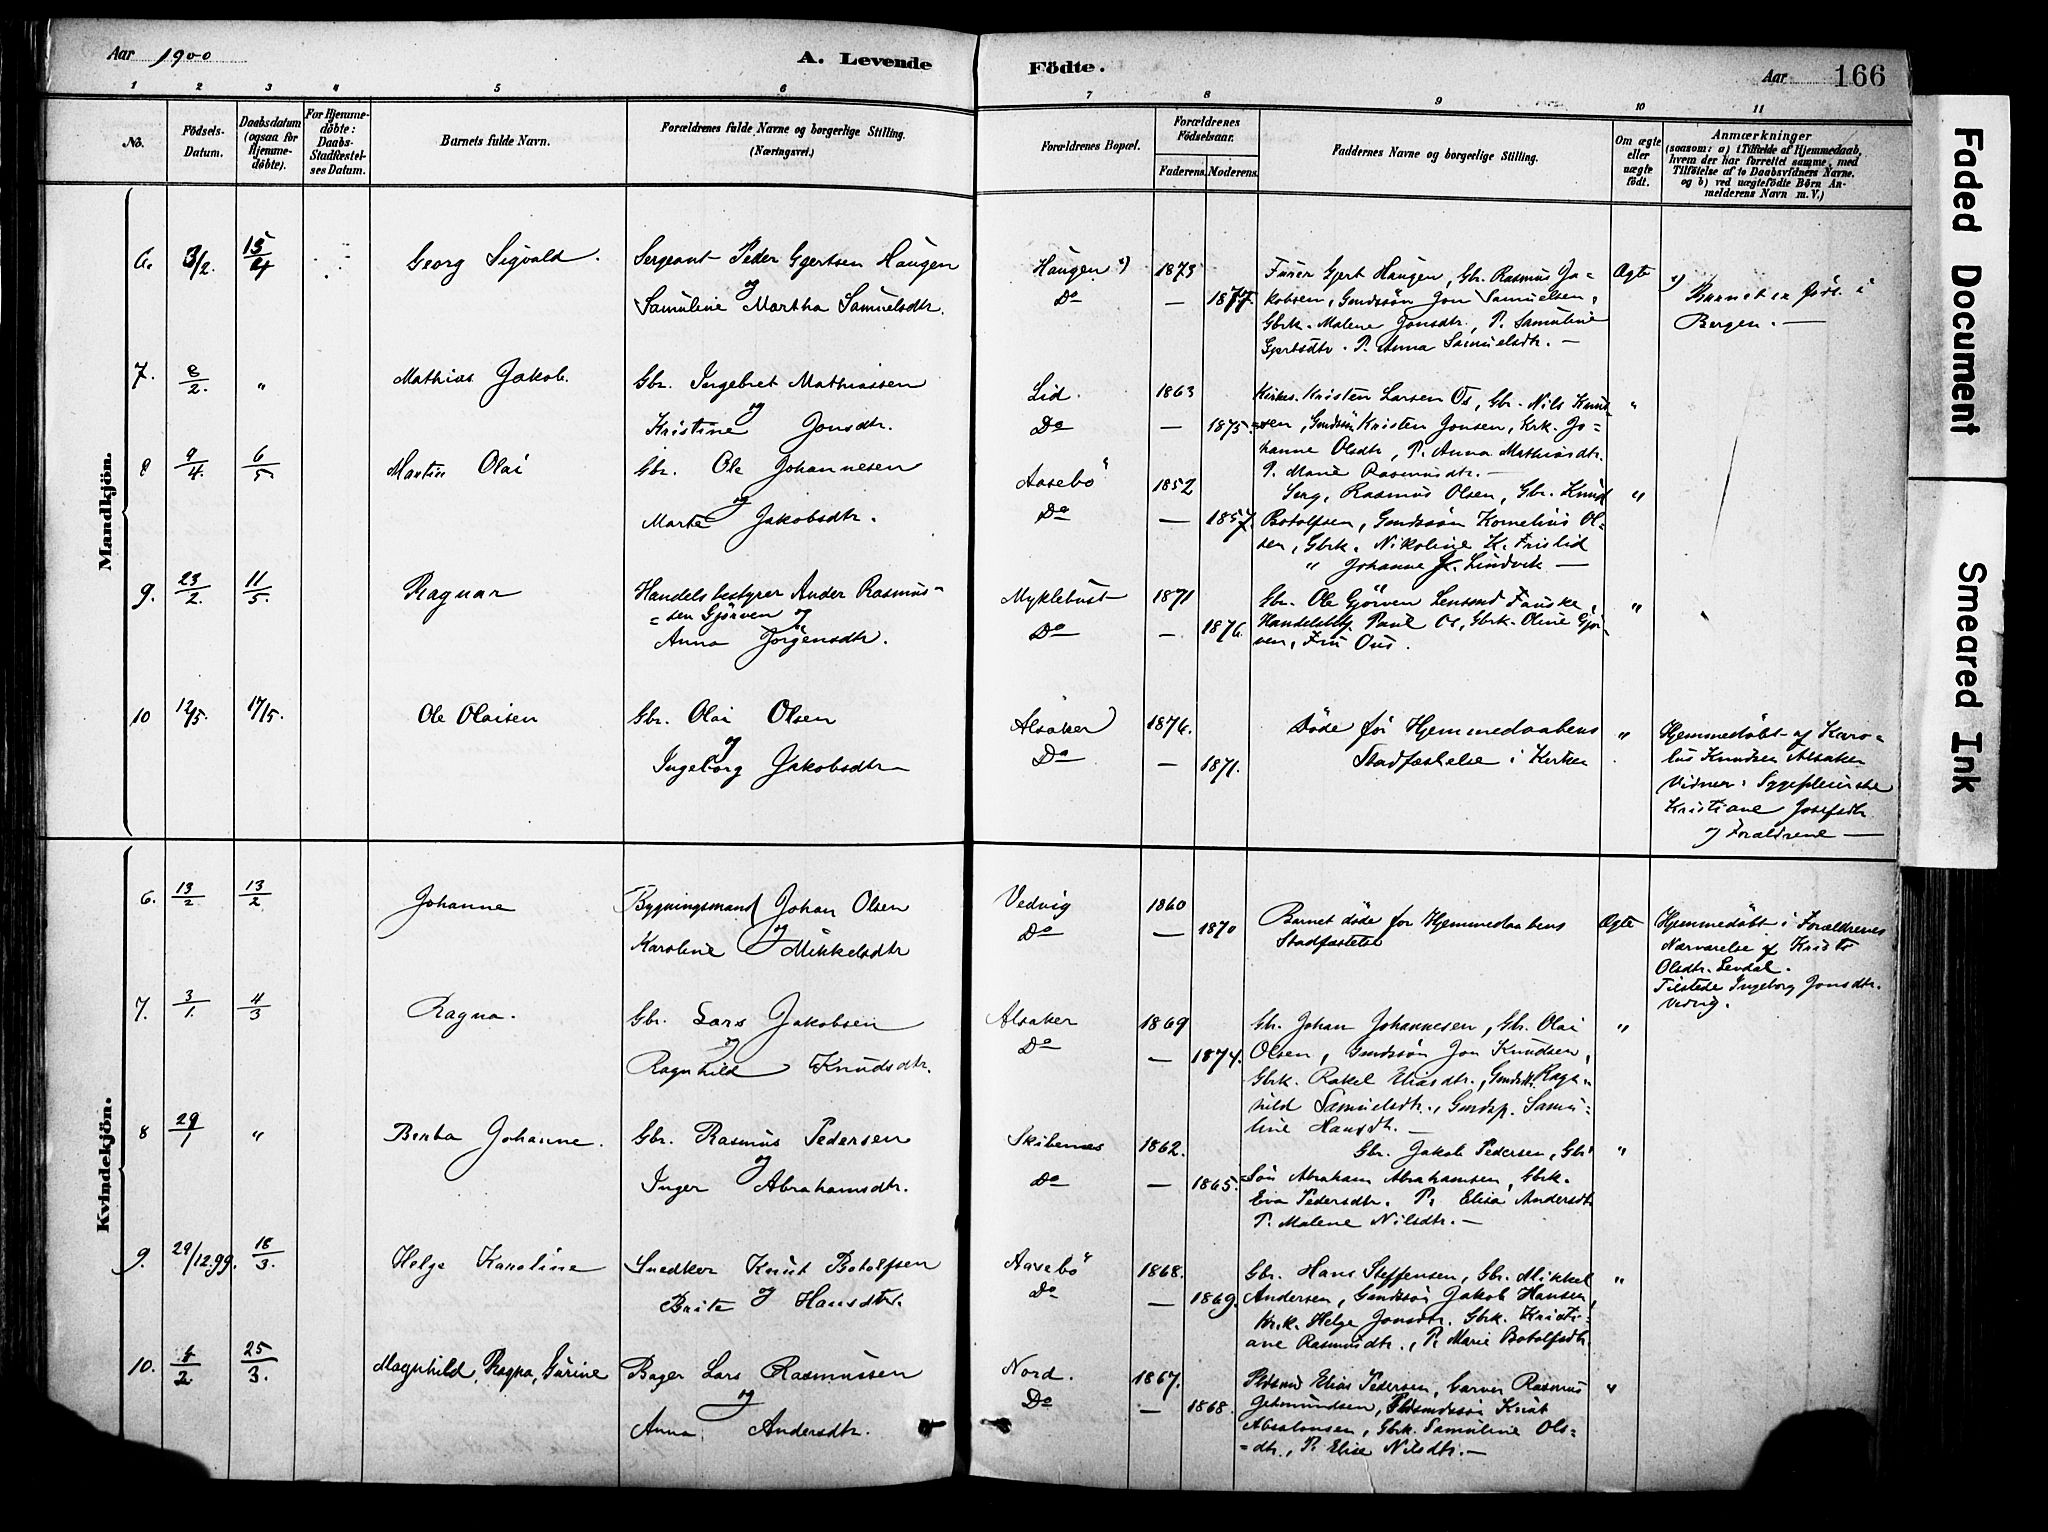 Aar 1900
A. Levende
Födte.
Aar
166
1 2 3 4 5 6 7 8 9 10 11
No.
Födsels-
Datum.
Daabsdatum
(ogsaa for
Hjemme-
döbte).
For Hjemme-
döbte:
Daabs-
Stadfæstel-
ses Datum.
Barnets fulde Navn.
Forældrenes fulde Navne og borgerlige Stilling.
(Næringsvei.)
Forældrenes Bopæl.
Forældrenes
Födselsaar.
Faderens.
Moderens.
Faddernes Navne og borgerlige Stilling.
Om ægte
eller
uægte
födt.
Anmærkninger
(saasom: a) i Tilfælde af Hjemmedaab,
hvem der har forrettet samme, med
Tilföielse af to Daabsvidners Navne.
og b) ved uægtefödte Börn An-
melderens Navn m. V.)
Mandkjön.
6. 3/2. 15/4 Georg Sigvald. Sergeant Peder Gjertsen Haugen
og
Samuline Martha Samuelsdtr.
Haugen 1) 1873
Do — 1877.
Furer Gjert Haugen, Gbr. Rasmus Ja-
kobsen, Gmdssön Jon Samuelsen,
Gbrk. Malene Jonsdtr., P. Samuline
Gjertsdtr. P. Anna Samuelsdtr. —
Ægte
1) Barnet er födt i
Bergen. —
7. 8/2. " Mathias Jakob. Gbr. Ingebret Mathiassen
og
Kristine Jonsdtr.
Lid. 1863
Do — 1875
Kirkes. Kristen Larsen Os, Gbr. Nils Knud-
sen, Gmdssön Kristen Jonsen, Krk. Jo-
hanne Olsdtr, P. Anna Mathiasdtr.
P. Marie Rasmusdtr. —
"
8 9/4. 6/5. Martin Olai Gbr. Ole Johannesen
og
Marte Jakobsdtr.
Aasebö 1852
Do — 1857.
Serg. Rasmus Olsen, Gbr. Knud
Botolfsen, Gmdssön Kornelius Ol-
sen, Gbrk. Nikoline K. Fristid
" Johanne Lindvik —
"
9. 23/2. 11/5. Ragnar Handelsbestyrer Ander Rasmus-
sen Gjörven og
Anna Jörgensdtr.
Myklebust 1871
Do — 1876.
Gbr. Ole Gjörven Lensmd Fauske,
Handelsb. Paul Os, Gbrk. Oline Gjör-
ven, Fru Ous.
"
10 12/5. 17/5. Ole Olaisen Gbr. Olai Olsen
og
Ingeborg Jakobsdtr —
Alsaker 1876.
Do — 1871.
Döde för Hjemmedaabens
Stadfæstelse i Kirken
"
Hjemmedöbt af Karo-
lus Knudsen Alsaker
Vidner: Sygepleierske
Kristiane Josefsdtr
og Forældrene —
Kvindekjön.
6. 13/2 13/2 Johanne Bygningsmand Johan Olsen
og
Karoline Mikkelsdtr
Vedvig 1860
Do — 1870
Barnet döde for Hjemmedaabens
Stadfæstelse
Ægte
Hjemmedöbt i Forældrenes
Nærværelse af Kristi
Olsdtr. Levdal.
Tilstede Ingeborg Jonsdtr.
Vedvig.
7. 3/1. 4/3 Ragna. Gbr. Lars Jakobsen
og
Ragnhild Knudsdtr.
Alsaker 1869
Do — 1874.
Gbr. Johan Johannesen, Gbr. Olai
Olsen, Gmdssön Jon Knudsen,
Gbrk. Rakel Eliasdtr., Gmdsk. Ragn-
hild Samuelsdtr., Gmdsp. Samu-
line Hansdtr. —
"
8 29/1 " Berta Johanne. Gbr. Rasmus Pedersen
og
Inger Abrahamsdtr.
Skibenes 1862.
Do — 1865.
Gbr. Jakob Pedersen, Gbr.
Sön Abraham Abrahamsen, Gbrk.
Eva Pedersdtr. P. Elisa Andersdtr
P. Malene Nilsdtr. —
"
9. 29/12.99. 18/3. Helga Karoline Snedker Knut Botolfsen
og
Brite Hansdtr.
Aasebö 1868.
Do — 1869.
Gbr. Hans Steffensen, Gbr. Mikkel
Andersen, Gmdssön Jakob Hansen,
Krk. Helge Jonsdtr. Gbrk. Kristi-
ane Rasmusdtr., P. Marie Botolfsdtr.
"
10. 4/2 25/3. Magnhild Ragna, Gurine Bager Lars Rasmussen
og
Anna Andersdtr.
Nord. 1867.
Do — 1868.
Pldsmd Elias Pedersen, Garver Rasmus
Gudmundsen, Plsmdssön Knut
Absalonsen, Gbrk. Samuline Ols-
dtr., P. Elise Nilsdtr. —
"
Faded Document
Smeared Ink